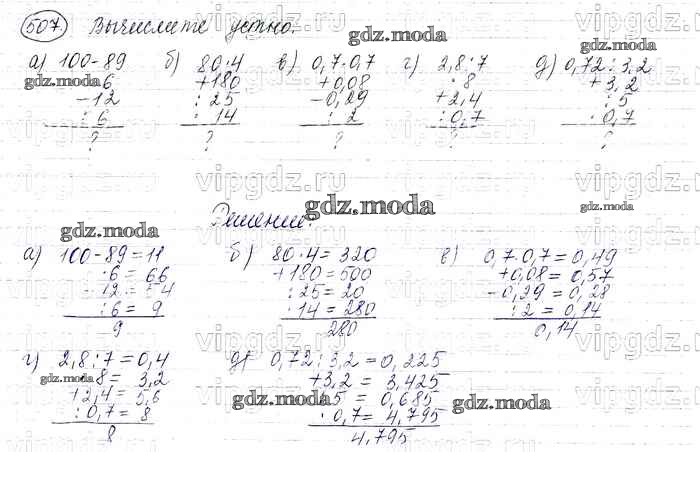 507 Вычислите устно.
а) 100-89 б) 80·4 в) 0,7·0,7 г) 2,8:7 д) 0,72:3,2
·6 +180 +0,08 ·8 +3,2
-12 :25 -0,29 +2,4 :5
:6 ·14 :2 :0,7 ·0,7
? ? ? ? ?
Решение:
а) 100-89=11 б) 80·4=320 в) 0,7·0,7=0,49
·6=66 +180=500 +0,08=0,57
-12=54 :25=20 -0,29=0,28
:6=9 ·14=280 :2=0,14
9 280 0,14
г) 2,8:7=0,4 д) 0,72:3,2=0,225
·8=3,2 +3,2=3,425
+2,4=5,6 :5=0,685
:0,7=8 ·0,7=4,795
8 4,795
gdz.moda
vipgdz.ru